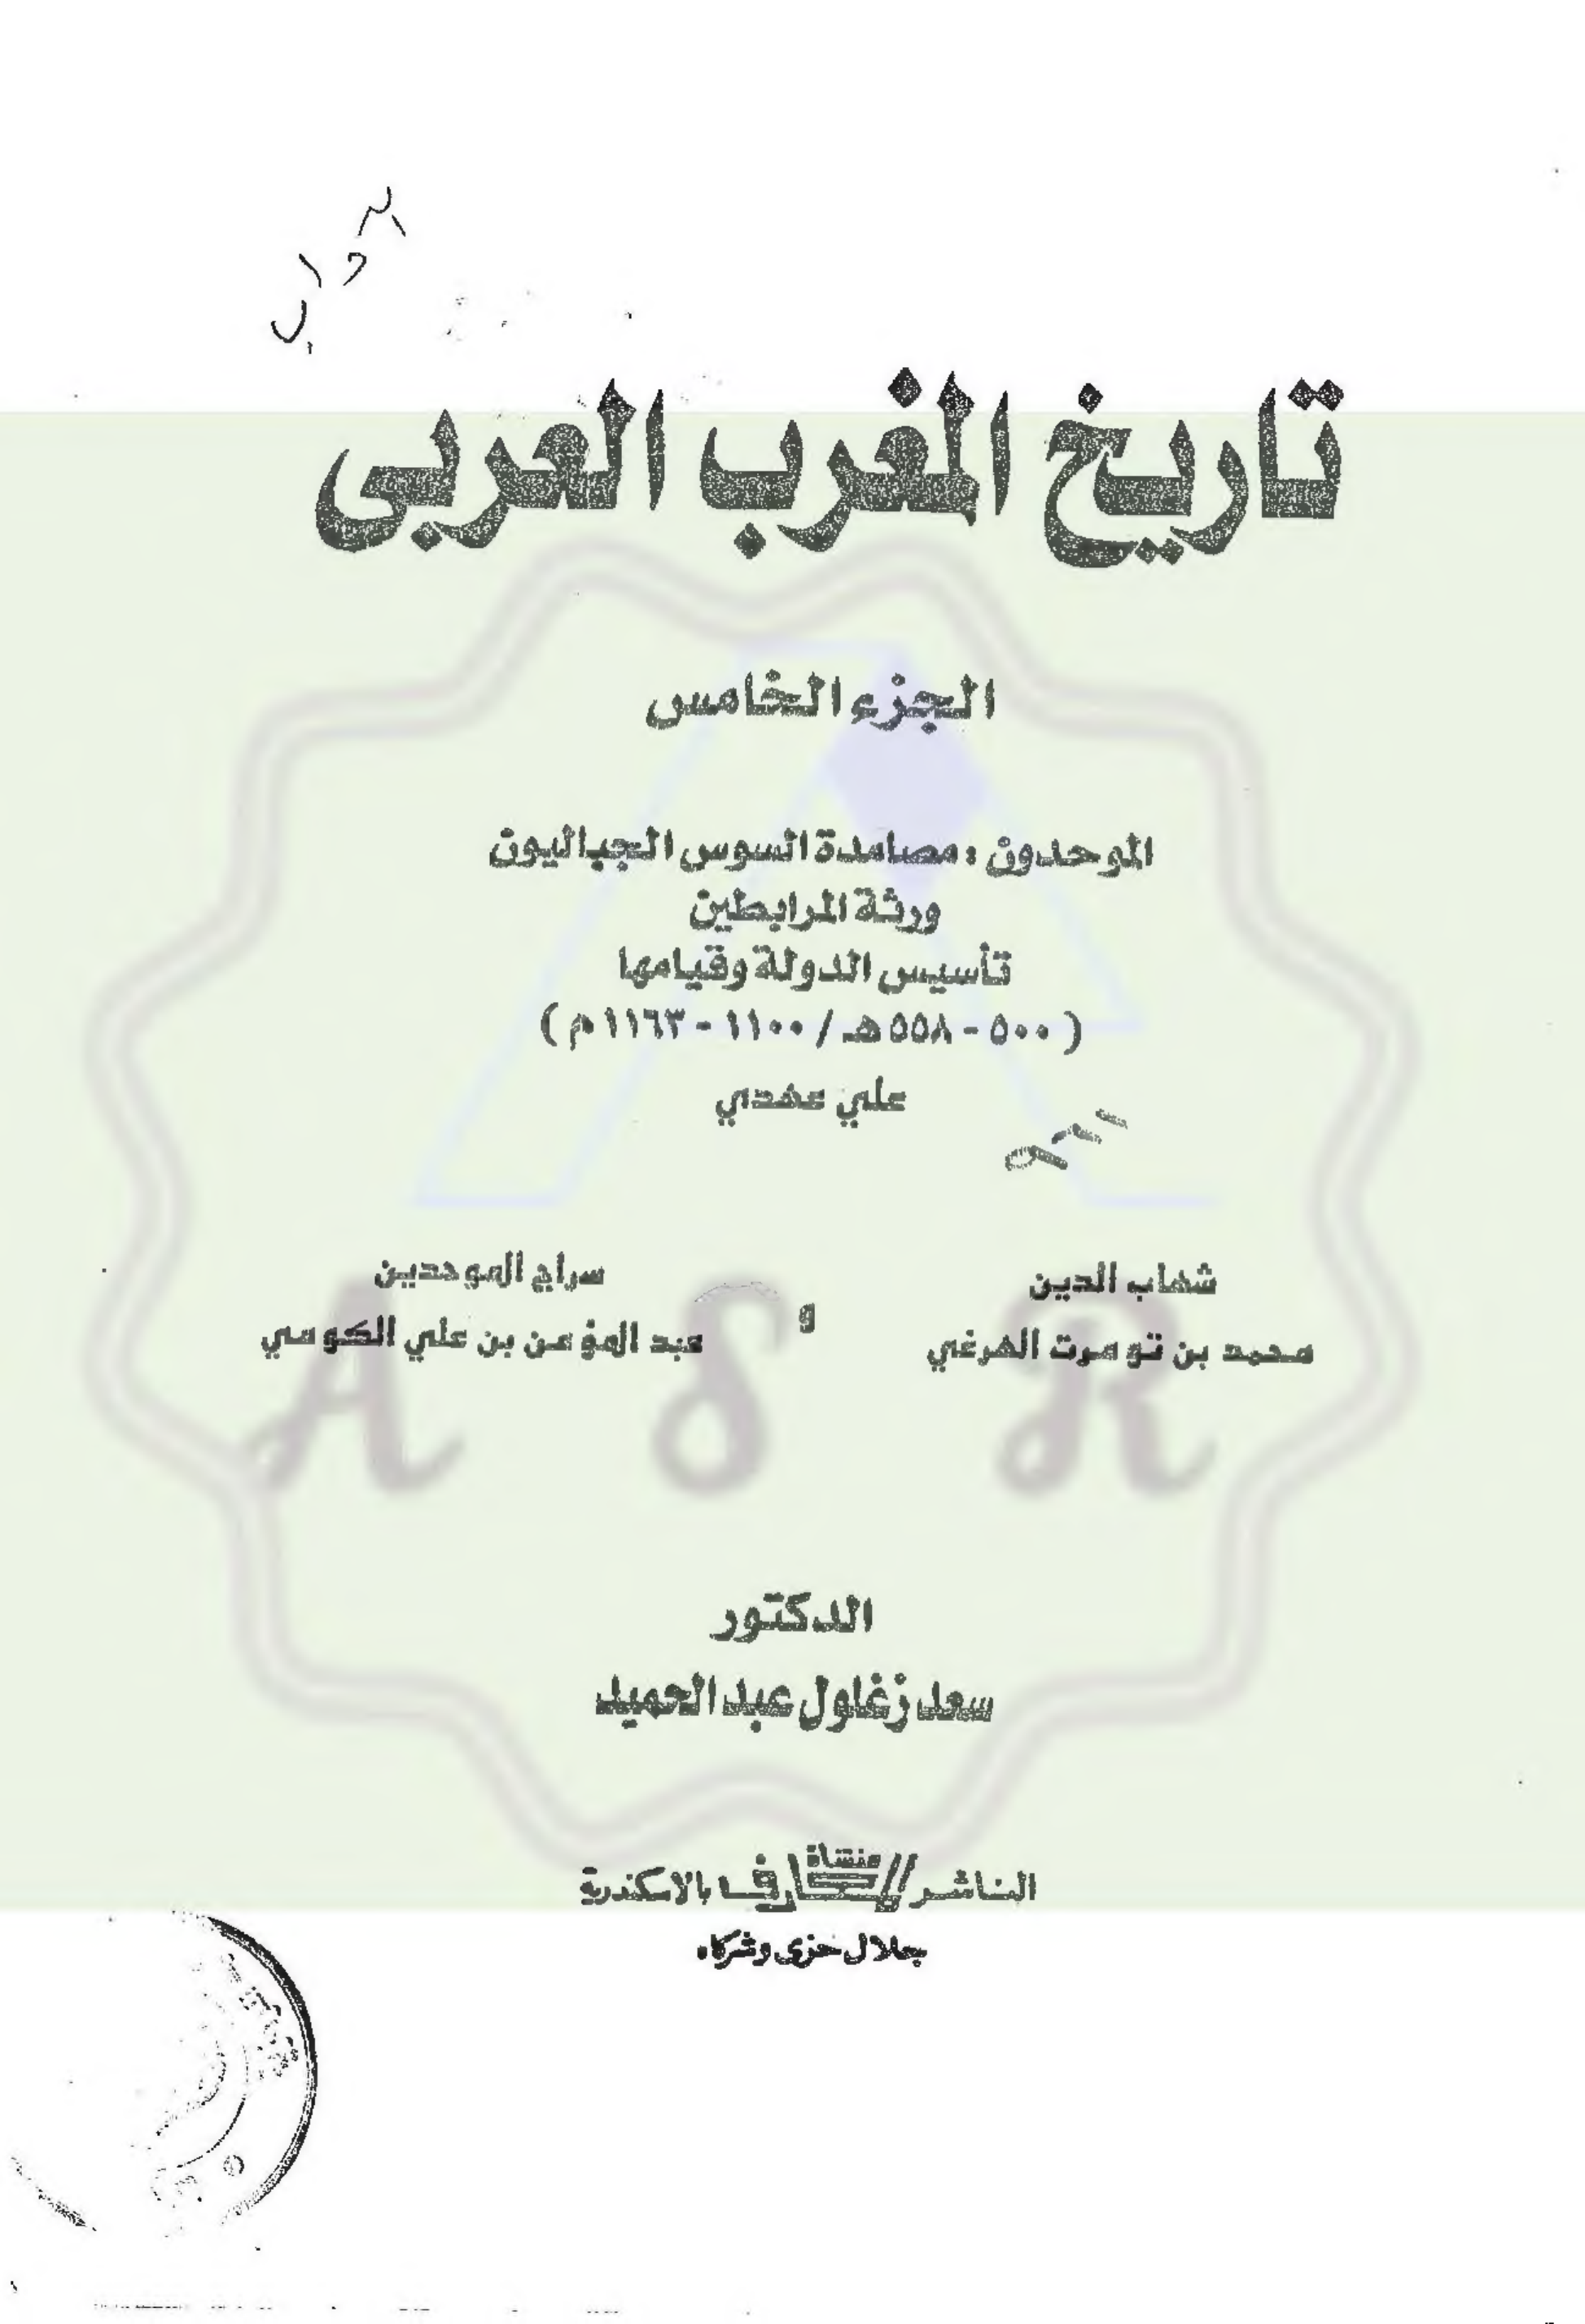 الآداب
تاريخ المغرب العربى
الجزء الخامس
الموحدون : مصامدة السوس الجباليون
ورثة المرابطين
تأسيس الدولة وقيامها
( ٥٠٠ - ٥٥٨ هـ / ١١٠٠ - ١١٦٣ م )
علي عهدي
شهاب الدين
محمد بن تومرت الهرغي
و
سراج الموحدين
عبد المؤمن بن علي الكومي
A S R
الدكتور
سعد زغلول عبد الحميد
الناشر منشأة المعارف بالاسكندرية
جلال حزى وشركاه